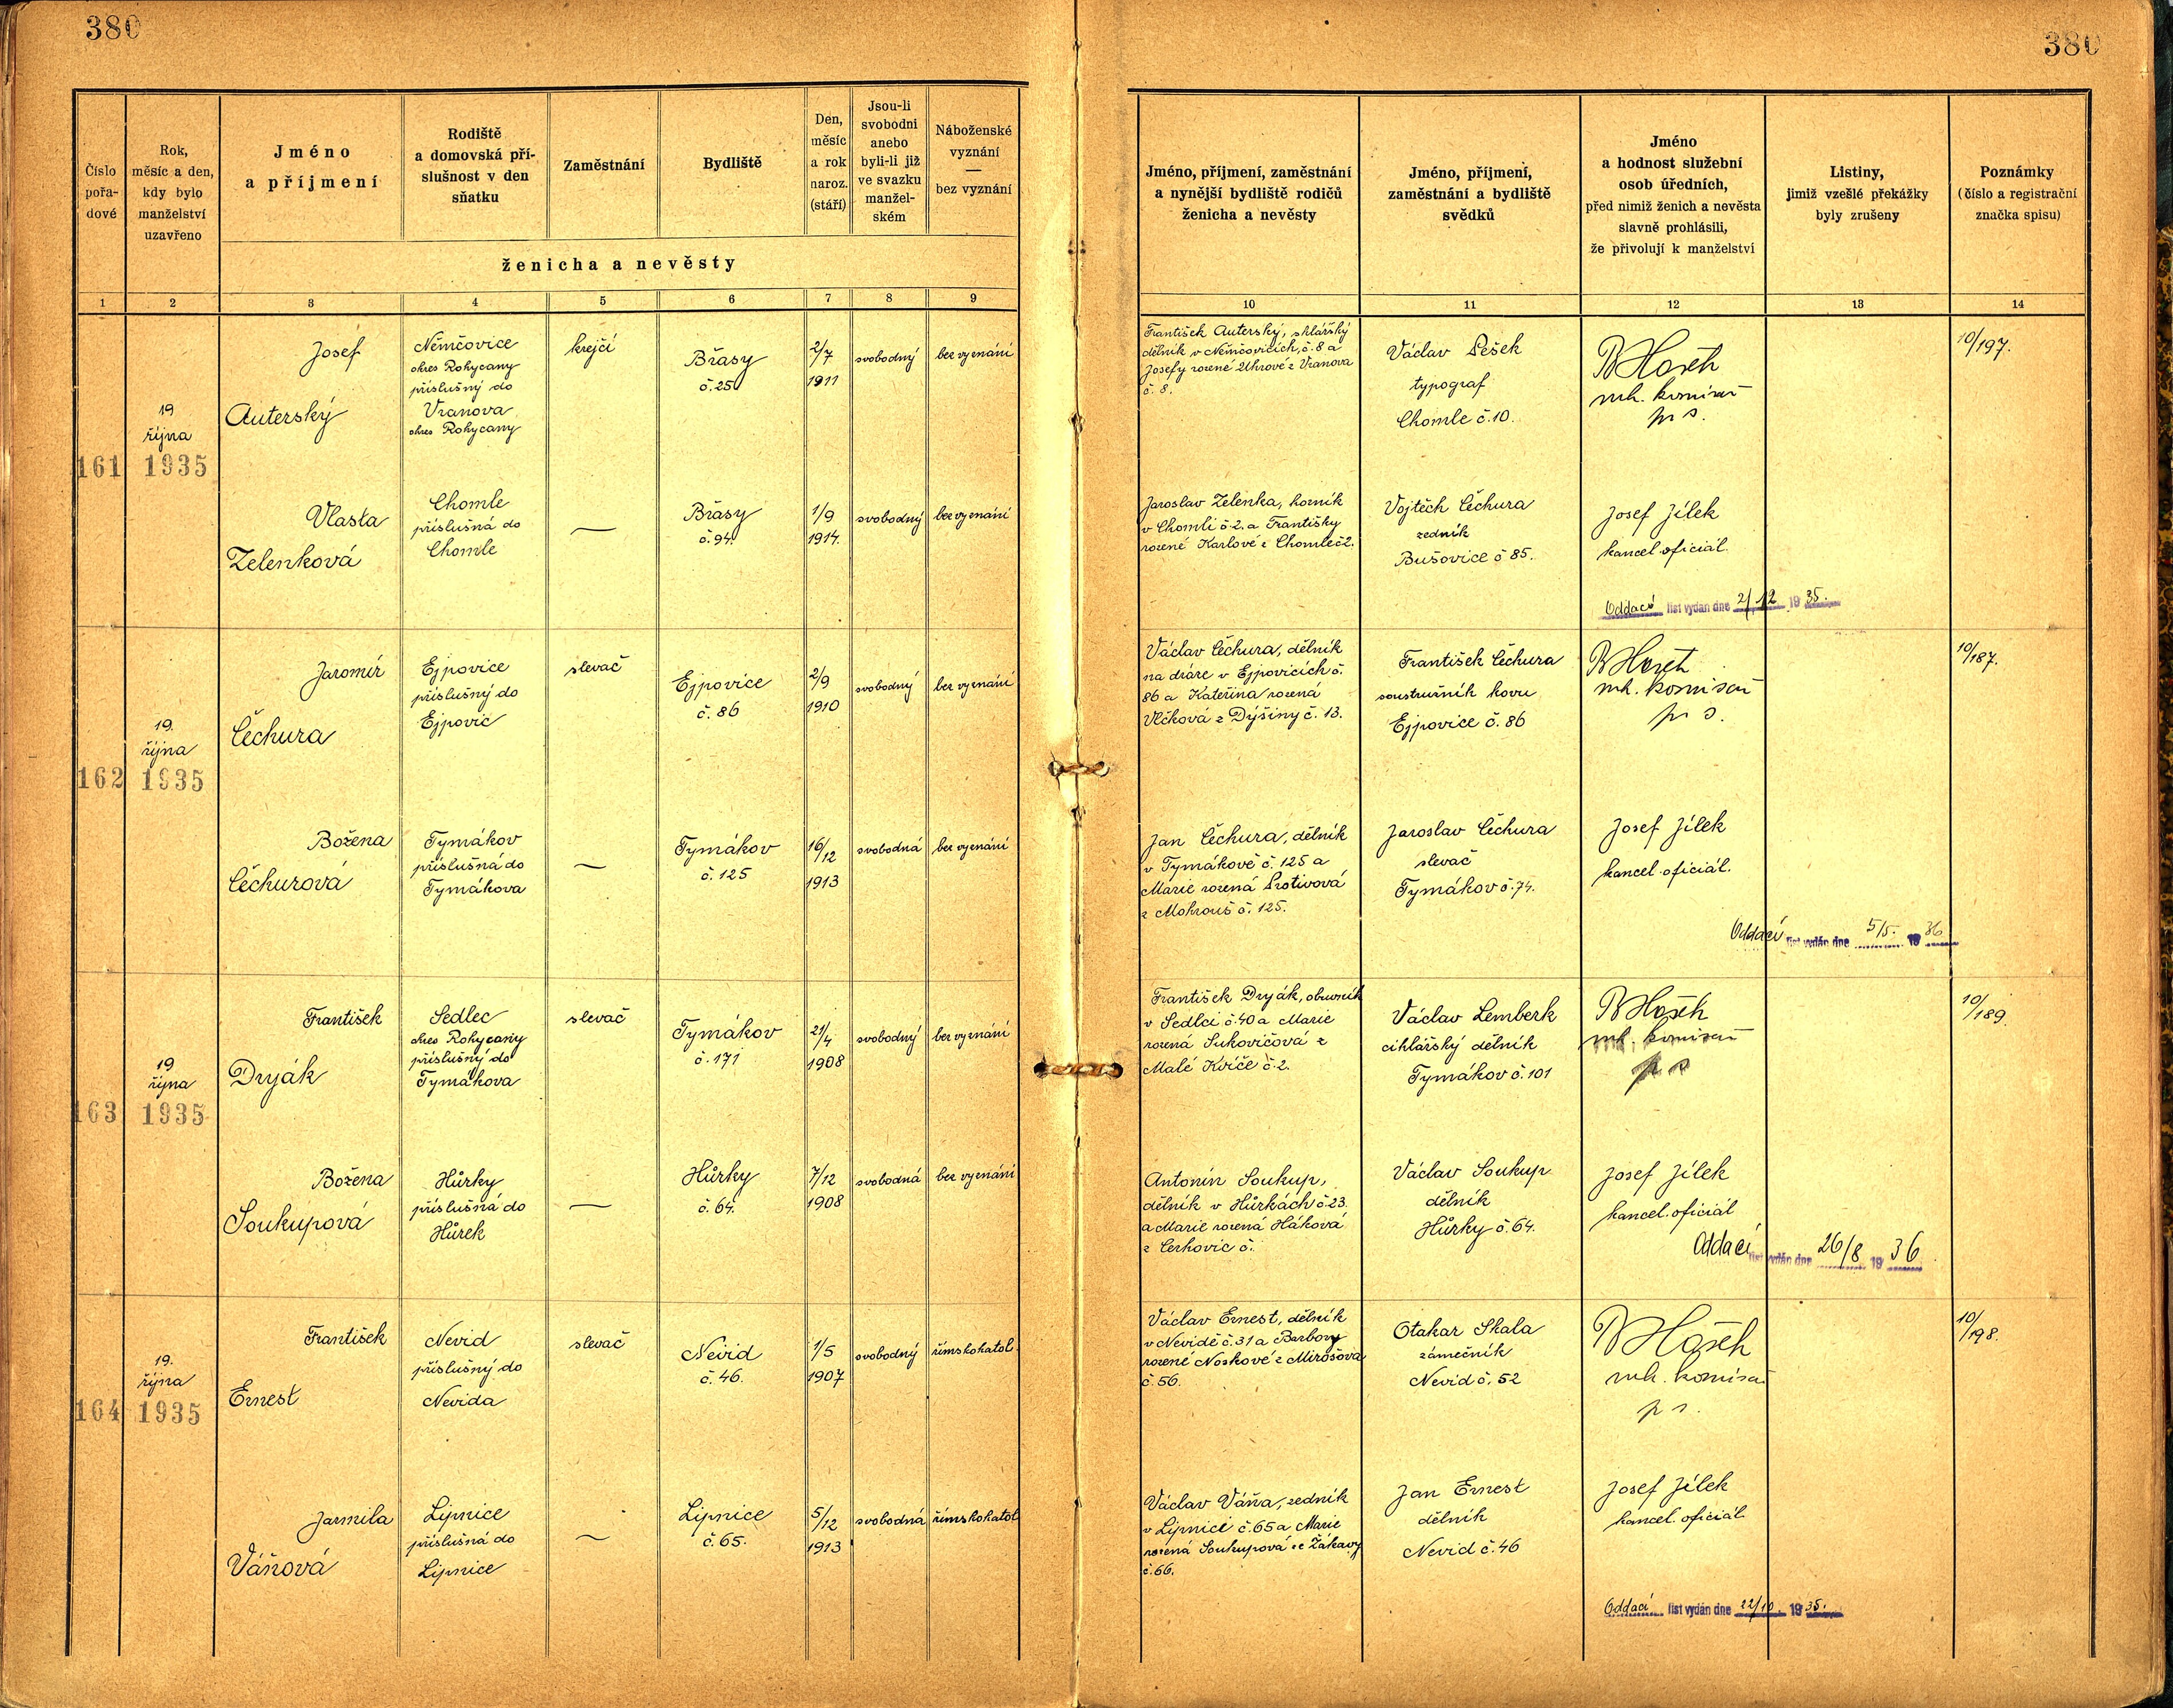 380
380
Číslo
pořa-
dové
Rok,
měsíc a den,
kdy bylo
manželství
uzavřeno
Jméno
a příjmení
Rodiště
a domovská pří-
slušnost v den
sňatku
Zaměstnání
Bydliště
Den,
měsíc
a rok
naroz.
(stáří)
Jsou-li
svobodni
anebo
byli-li již
ve svazku
manžel-
ském
Náboženské
vyznání
—
bez vyznání
ženicha a nevěsty
1 2 3 4 5 6 7 8 9
Jméno, příjmení, zaměstnání
a nynější bydliště rodičů
ženicha a nevěsty
Jméno, příjmení,
zaměstnání a bydliště
svědků
Jméno
a hodnost služební
osob úředních,
před nimiž ženich a nevěsta
slavně prohlásili,
že přivolují k manželství
Listiny,
jimiž vzešlé překážky
byly zrušeny
Poznámky
(číslo a registrační
značka spisu)
10 11 12 13 14
161
19
října
1935
Josef
Auterský
Němčovice
okres Rokycany
příslušný do
Vranova
okres Rokycany
krejčí
Břasy
č. 25
2/7
1911
svobodný
bez vyznání
František Auterský, sklářský
dělník v Němčovicích, č. 8 a
Josefy rozené Uhrové z Vranova
č. 8.
Václav Pešek
typograf
Chomle č. 10.
mk. komisař
p s.
10/197.
Vlasta
Zelenková
Chomle
příslušná do
Chomle
—
Břasy
č. 94.
1/9
1914.
svobodný
bez vyznání
Jaroslav Zelenka, horník
v Chomli č. 2. a Františky
rozené Karlové z Chomle č 2.
Vojtěch Čechura
zedník
Bušovice č 85.
Josef Jílek
kancel. oficiál.
Oddací list vydán dne 2/12 1935.
162
19.
října
1935
Jaromír
Čechura
Ejpovice
příslušný do
Ejpovic
slevač
Ejpovice
č. 86
2/9
1910
svobodný
bez vyznání
Václav Čechura, dělník
na dráze v Ejpovicích č.
86 a Kateřina rozená
Vlčková z Dýšiny č. 13.
František Čechura
soustružník kovu
Ejpovice č. 86
mk. komisař
p s.
10/187.
Božena
Čechurová
Tymákov
příslušná do
Tymákova
—
Tymákov
č. 125
16/12
1913
svobodná
bez vyznání
Jan Čechura, dělník
v Tymákově č. 125 a
Marie rozená Protivová
z Mokrouš č. 125.
Jaroslav Čechura
slevač
Tymákov č. 74.
Josef Jílek
kancel. oficiál.
Oddací list vydán dne 5/5. 1936
163
19
října
1935
František
Dryák
Sedlec
okres Rokycany
příslušný do
Tymákova
slevač
Tymákov
č. 171
21/4
1908
svobodný
bez vyznání
František Dryák, obuvník
v Sedlci č. 40 a Marie
rozená Sukovičová z
Malé Kvíče č. 2.
Václav Lemberk
cihlářský dělník
Tymákov č. 101
mk. komisař
p s
10/189.
Božena
Soukupová
Hůrky
příslušná do
Hůrek
—
Hůrky
č. 64.
7/12
1908
svobodná
bez vyznání
Antonín Soukup,
dělník v Hůrkách č. 23.
a Marie rozená Háková
z Cerhovic č.
Václav Soukup
dělník
Hůrky č. 64.
Josef Jílek
kancel. oficiál
Oddací list vydán dne 26/8 1936
164
19.
října
1935
František
Ernest
Nevid
příslušný do
Nevida
slevač
Nevid
č. 46.
1/5
1907
svobodný
římskokatol.
Václav Ernest, dělník
v Nevidě č. 31 a Barbory
rozené Noskové z Mirošova
č. 56.
Otakar Skala
zámečník
Nevid č. 52
mk. komisař
p s.
10/198.
Jarmila
Váňová
Lipnice
příslušná do
Lipnice
—
Lipnice
č. 65.
5/12
1913
svobodná
římskokatol.
Václav Váňa, zedník
v Lipnici č. 65 a Marie
rozená Soukupová ze Žákavy
č. 66.
Jan Ernest
dělník
Nevid č. 46
Josef Jílek
kancel. oficiál.
Oddací list vydán dne 22/10. 1935.